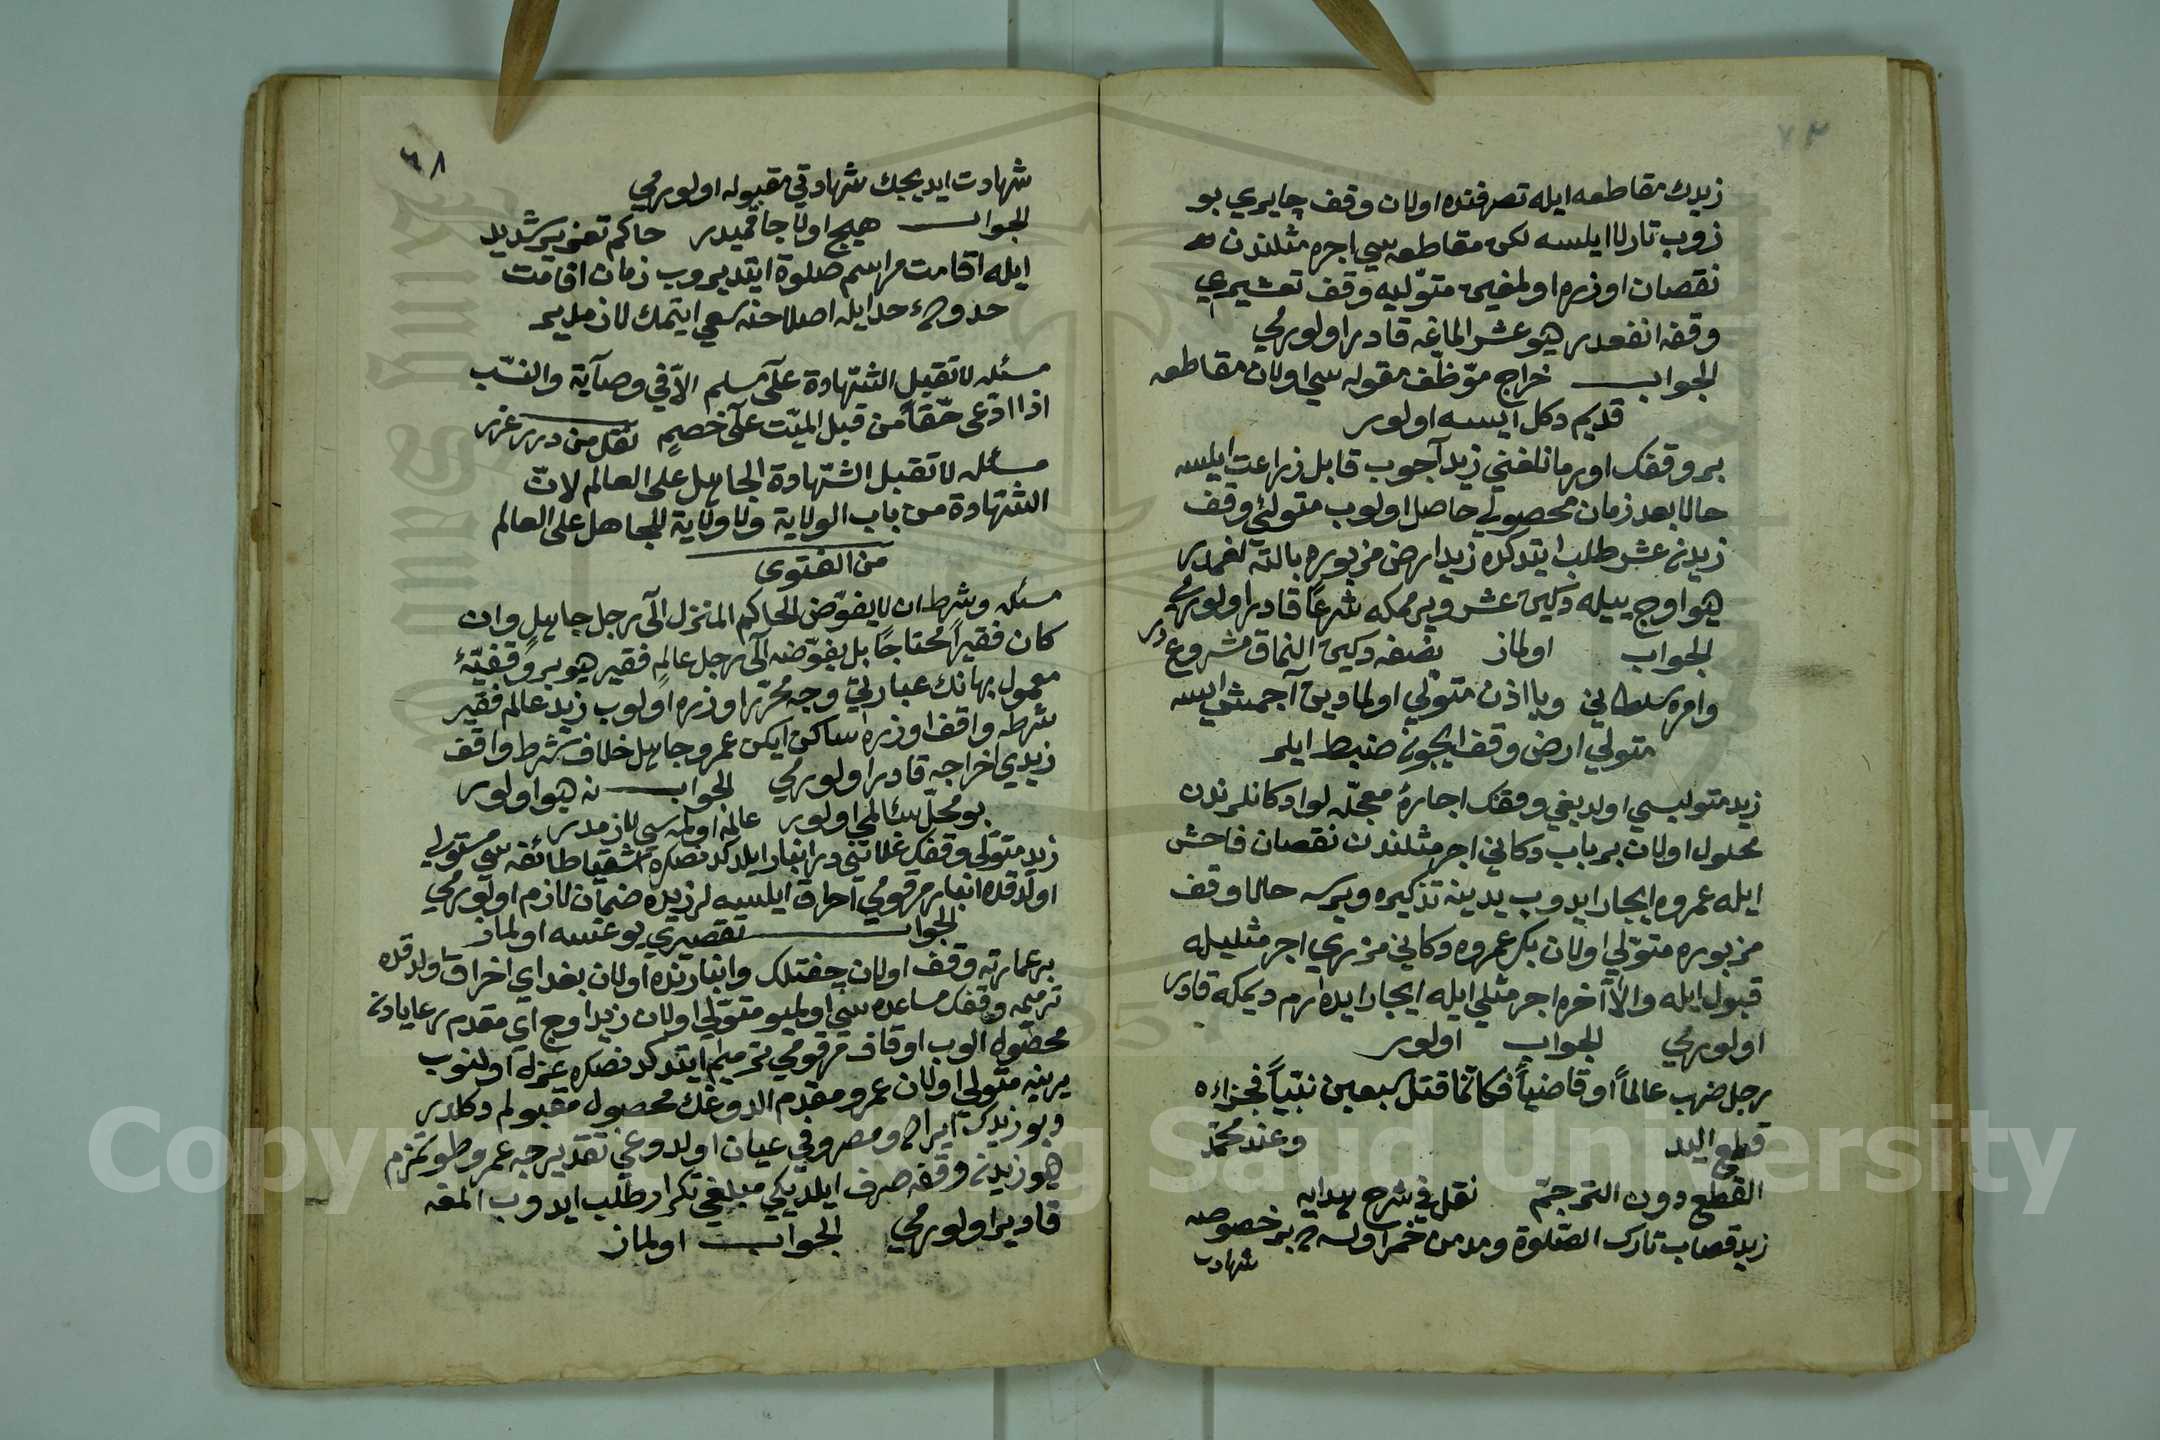 زيدك مقاطعه ايله تصرفنده اولان وقف چايري بو
زوب تارلا ايلسه لكن مقاطعه سي اجر مثلندن
نقصان اوزره اولمغين متوليه وقف تعشيري
وقفه انفعدر هيو عشر الماغه قادر اولورمي
الجواب خراج موظف مقوله سي اولان مقاطعه
قديم دكل ايسه اولور
بر وقفك اورمانلغني زيد آچوب قابل زراعت ايلسه
حالا بعد زمان محصولي حاصل اولوب متولئ وقف
زيدنه عشر طلب ايتدكده زيد ارض مزبوره بالته
هيو اوچ ييله دكين عشر ويرممكه شرعاً قادر اولورمي
الجواب اولماز نصفه دكين النماق مشروعدر
وامره سلطاني ويا اذن متولي اولمادين آچمش ايسه
متولي ارض وقف ايچون ضبط ايلر
زيد متوليسي اولديغي وقفك اجارهٔ معجّله لو دكانلرندن
محلول اولان بر باب دكاني اجر مثلندن نقصان فاحش
ايله عمروه ايجار ايدوب يدينه تذكيره ويرسه حالا وقف
مزبوره متوّلي اولان بكر عمروه دكاني مزبوري اجر مثليله
قبول ايله والاّ آخره اجر مثلي ايله ايجار ايده رم ديمكه قادر
اولورمي الجواب اولور
رجل ضرب عالماً او قاضياً فكانما قتل سبعين نبيّاً فجزاءه
قطع اليد وعند محمّد
القطع دون الترجم نقل في شرح هدايه
زيد قصاب تارك الصّلوة ومدمن خمر اولسه بر خصوصه
شهادت
٦٨
شهادت ايديجك شهادتي مقبوله اولورمي
الجواب هيچ اولاجاقميدر حاكم تعزير شديد
ايله اقامت مراسم صلوة ايتديروب زمان اقامت
حدوده حد ايله اصلاحنه سعي ايتمك لازمدير
مسئله لا تقبل الشّهادة على مسلم الاّ في وصآية والنسّب
اذا ادّعى حقّاً من قبل الميّت على خصيم نقل من درر غرر
مسئله لا تقبل الشّهادة الجاهل على العالم لانّ
الشّهادة من باب الولاية ولا ولاية للجاهل على العالم
من الفتوى
مسئله وشرط ان لا يفوّض الحاكم المنزل الى رجل جاهل وان
كان فقيراً محتاجاً بل يفوّضه الى رجل عالم فقير هيو بر وقفيّهٔ
معمول بهانك عبارتي وجه محرّر اوزره اولوب زيد عالم فقير
شرطه واقف اوزره ساكن ايكن عمرو جاهل خلاف شرط واقف
زيدي اخراجه قادر اولورمي الجواب نه هيو اولور
بو محلّ عالم اولمه سي لازمدر
زيد متوّلي وقفك غلاتني در انبار ايلدكدنصكره اشقيا طائفه سي مستولي
اولدقده انبار مرقومي احراق ايلسه لر زيده ضمان لازم اولورمي
الجواب تقصيري يوغسه اولماز
بر عمارته وقف اولان چفتلك وانبارنده اولان بغداي اخراق اولدقده
ترميمه وقفك مساعده سي اولميو متوّلي اولان زيد اوچ آي مقدم رعايادنه
محصول الوب اوقاف مرقومي ترميم ايتدكدنصكره عزل اولنوب
يرينه متولي اولان عمرو مقدم الدوغك محصول مقبولم دكلدر
وبو زيدك ايراد ومصروفي عيان اولدوغي تقديرجه عمرو
هيو زيدنه وقفه صرف ايلديكي مبلغي تكرار طلب ايدوب المغه
قادير اولورمي الجواب اولماز
Copyright © King Saud University
1957